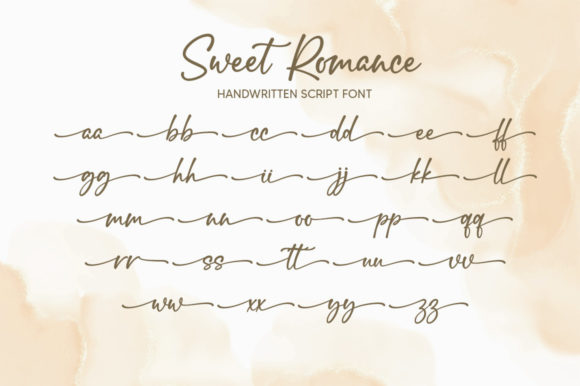 Sweet Romance
HANDWRITTEN SCRIPT FONT
aa bb cc dd ee ff
gg hh ii jj kk ll
mm nn oo pp qq
rr ss tt uu vv
ww xx yy zz